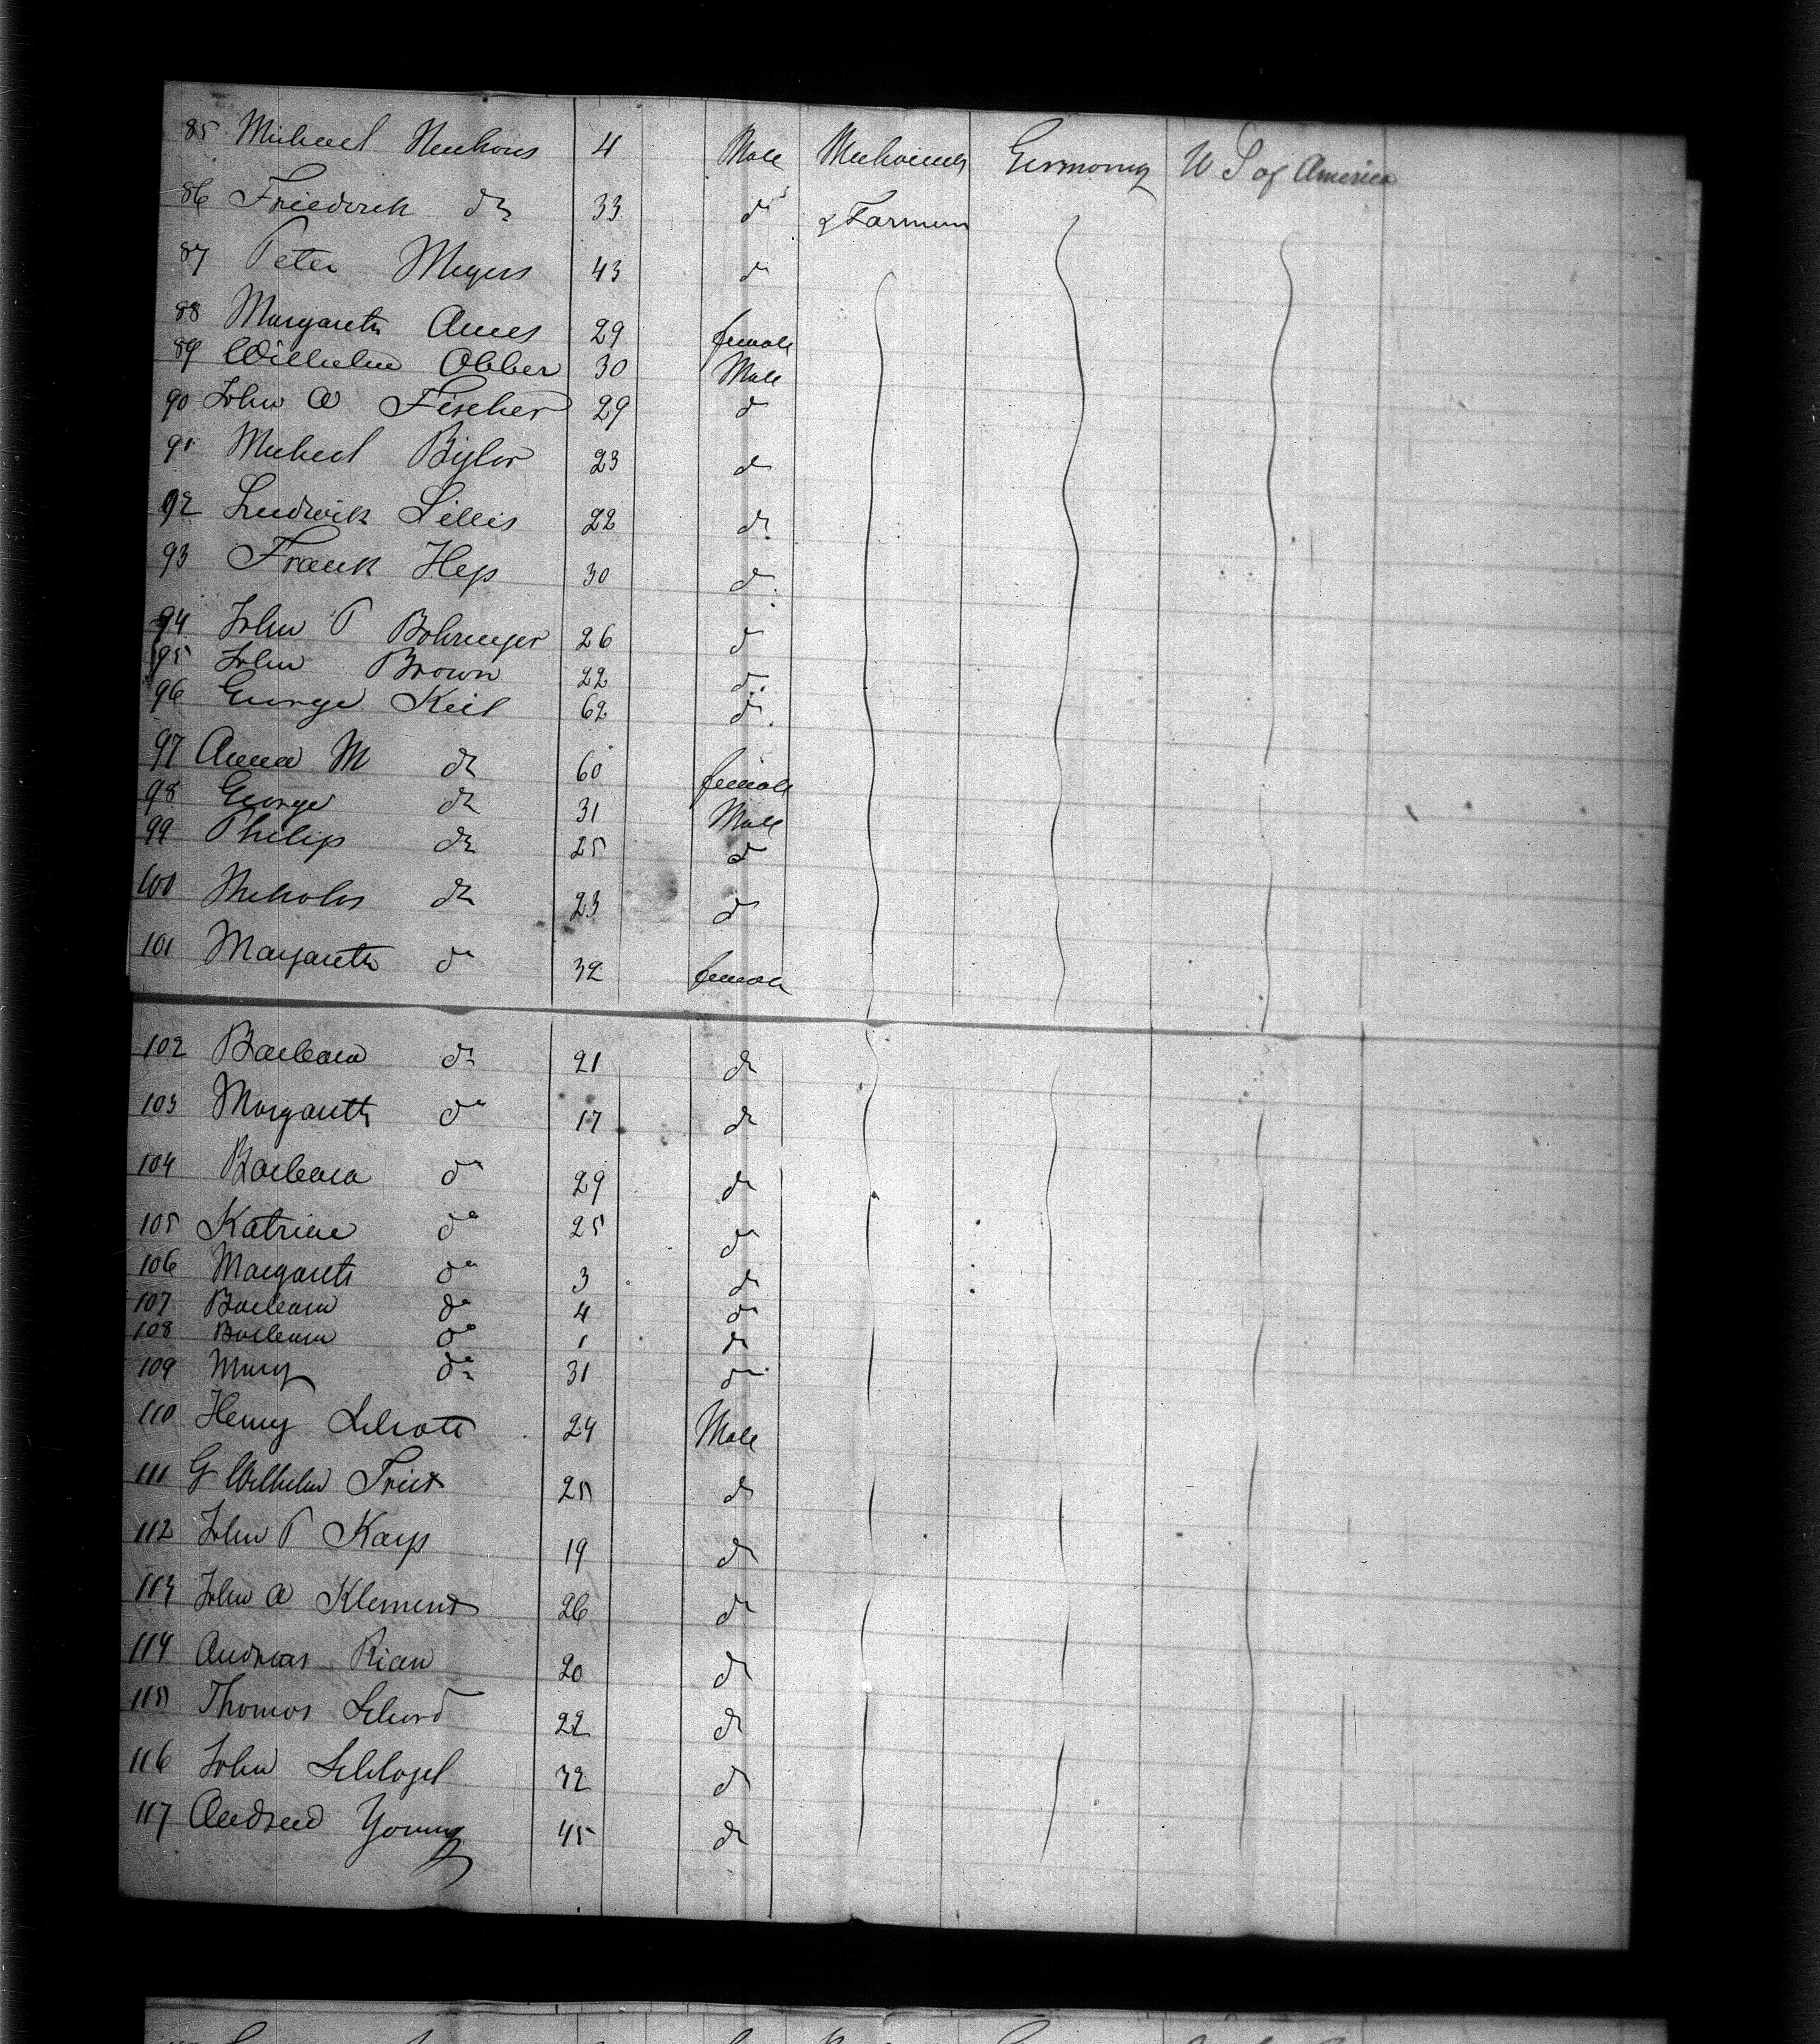 85 Michael Neuhous 4 Male Mechanics Germony U S of America
86 Friedrich do 33 do & Farmers
87 Peter Meyers 43 do
88 Margareth Aues 29 female
89 Wilhelm Obber 30 Male
90 John A Fischer 29 do
91 Michael Bijlor 23 do
92 Ludwik Lillis 22 do
93 Frank Hep 30 do
94 John P Bohrenger 26 do
95 John Brown 22 do
96 George Keil 62 do
97 Anna M do 60 female
98 George do 31 Male
99 Philip do 25 do
100 Nicholos do 23 do
101 Margareth do 32 female
102 Barbara do 21 do
103 Margareth do 17 do
104 Barbara do 29 do
105 Katrine do 25 do
106 Margareth do 3 do
107 Barbara do 4 do
108 Barbara do 1 do
109 Mary do 31 do
110 Henry Schott 24 Male
111 G Wilhelm Friet 25 do
112 John P Karp 19 do
113 John A Klement 26 do
114 Andreas Rian 20 do
115 Thomas 22 do
116 John Schlogel 32 do
117 Andreas Young 45 do